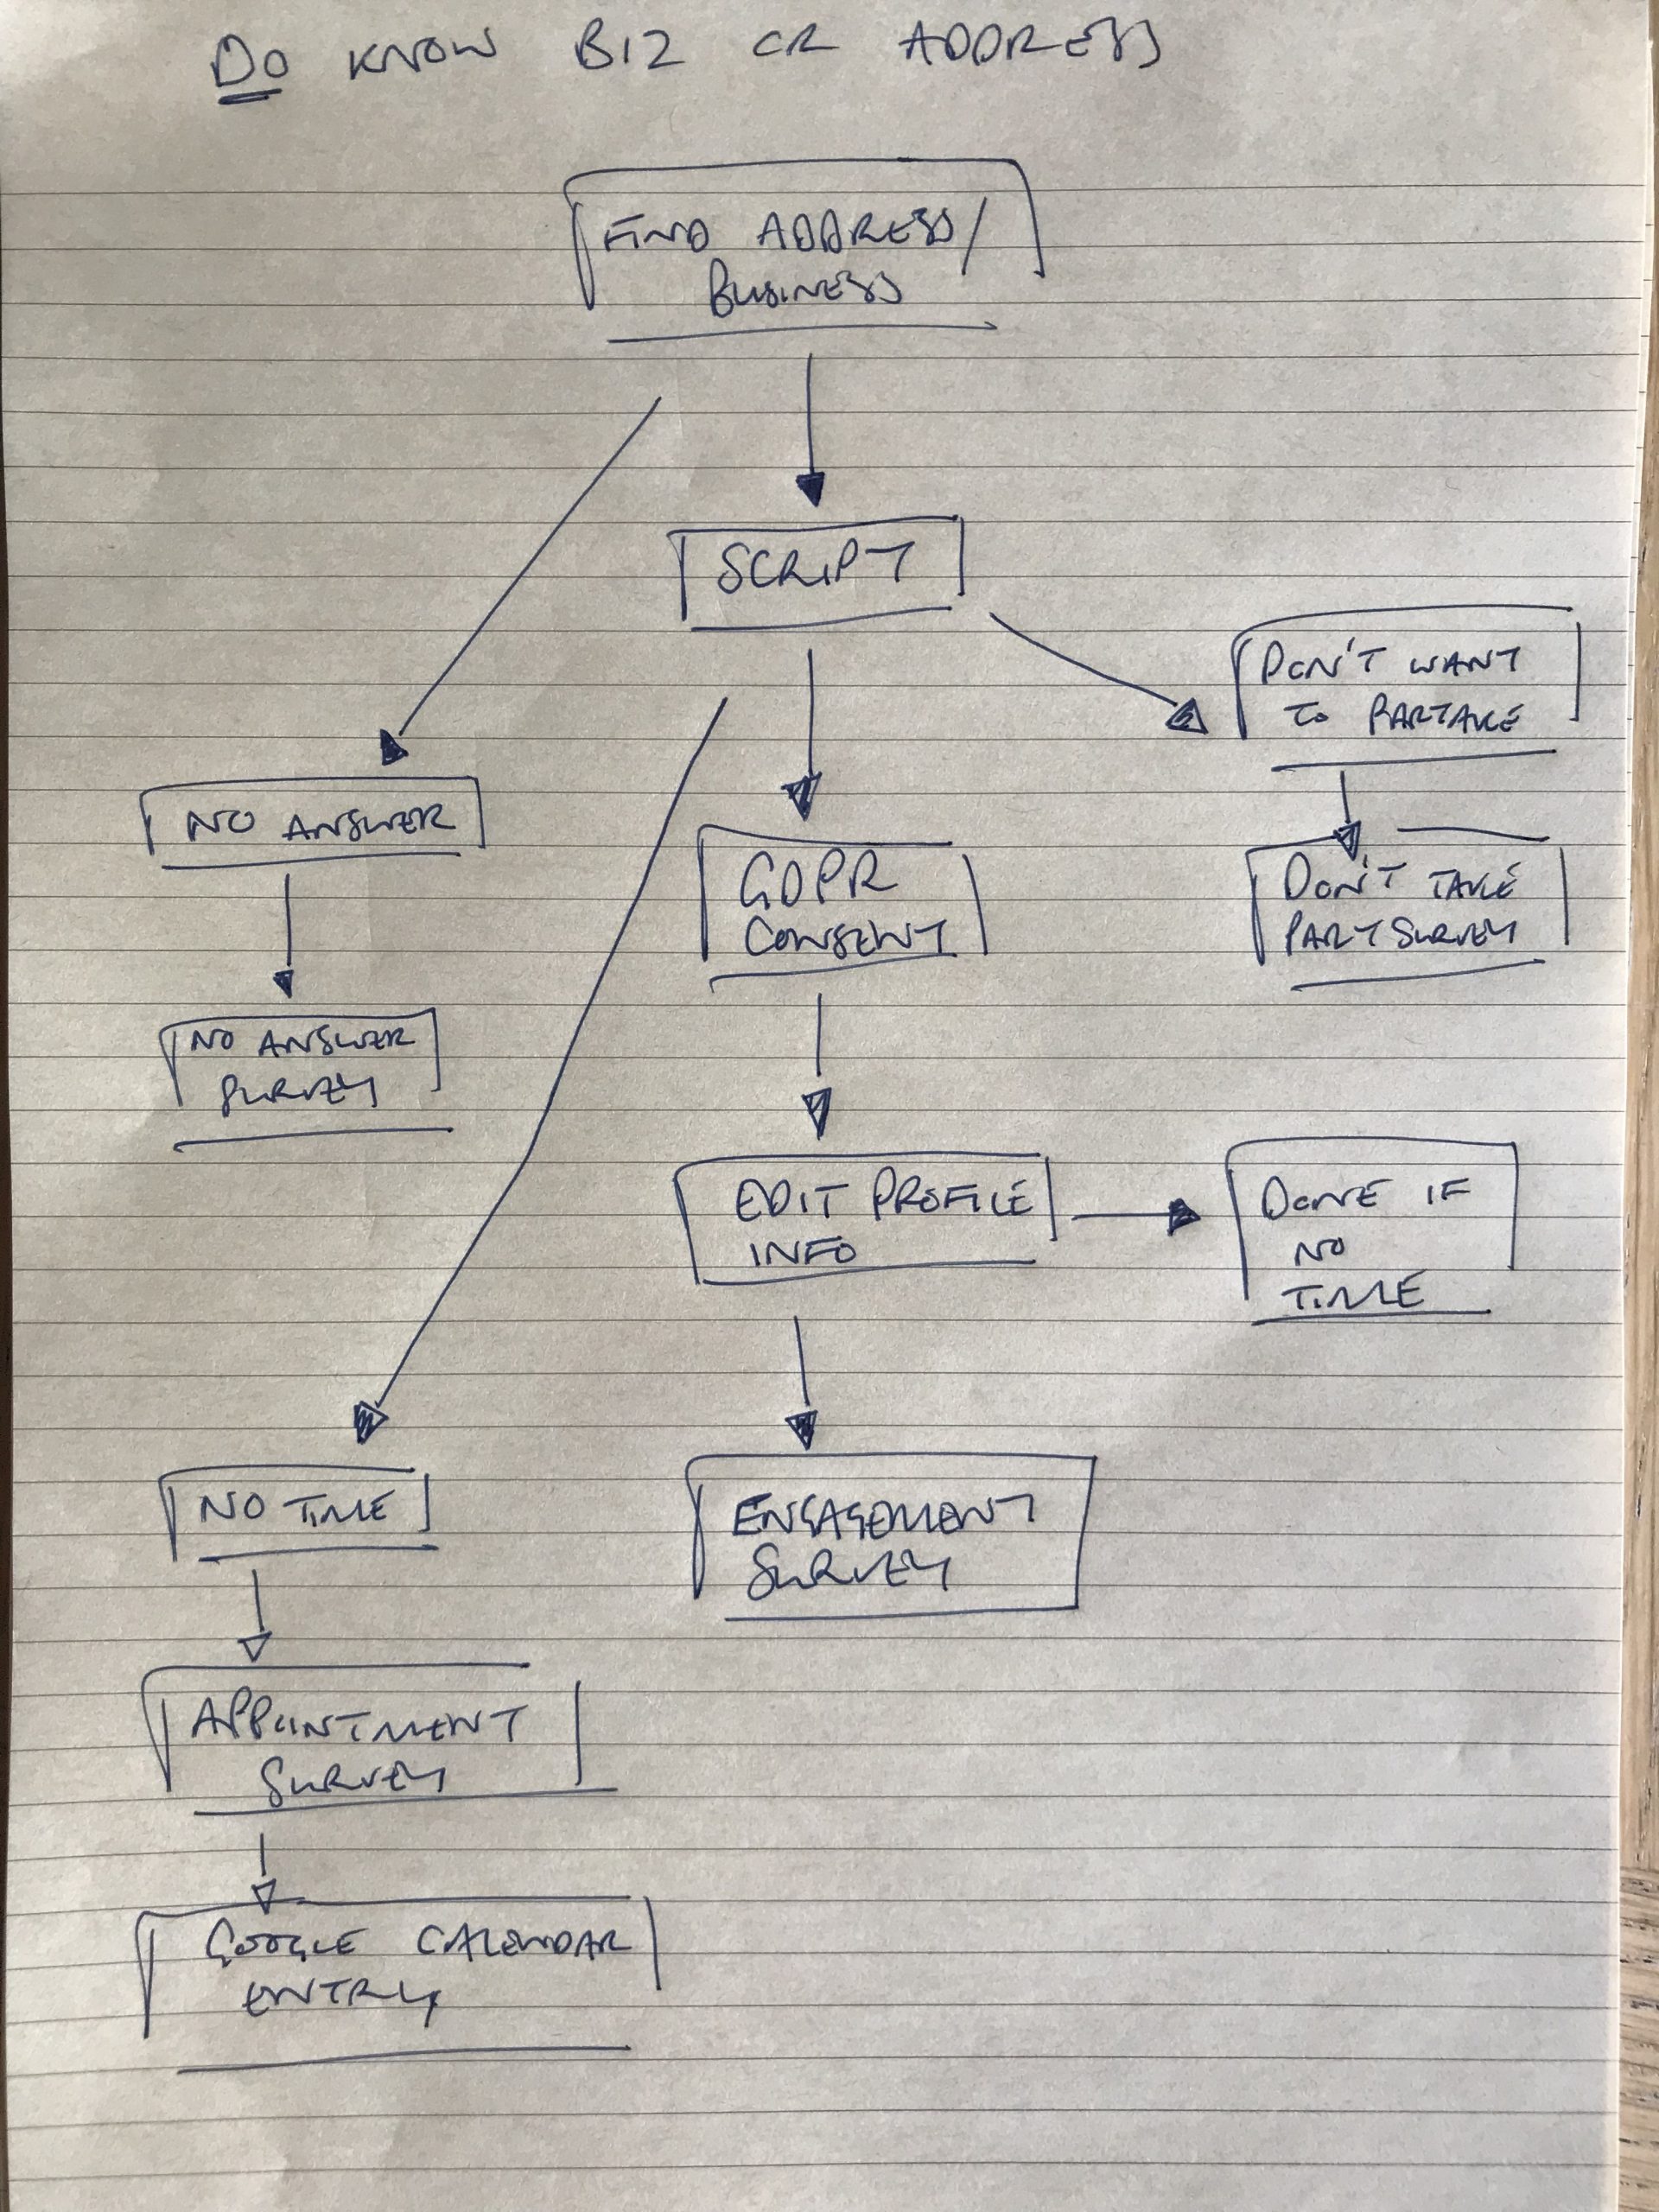 DO KNOW BIZ OR ADDRESS
FIND ADDRESS/
BUSINESS
SCRIPT
DON'T WANT
TO PARTAKE
NO ANSWER
GDPR
CONSENT
DON'T TAKE
PART SURVEY
NO ANSWER
SURVEY
EDIT PROFILE
INFO
DONE IF
NO
TIME
NO TIME
ENGAGEMENT
SURVEY
APPOINTMENT
SURVEY
GOOGLE CALENDAR
ENTRY